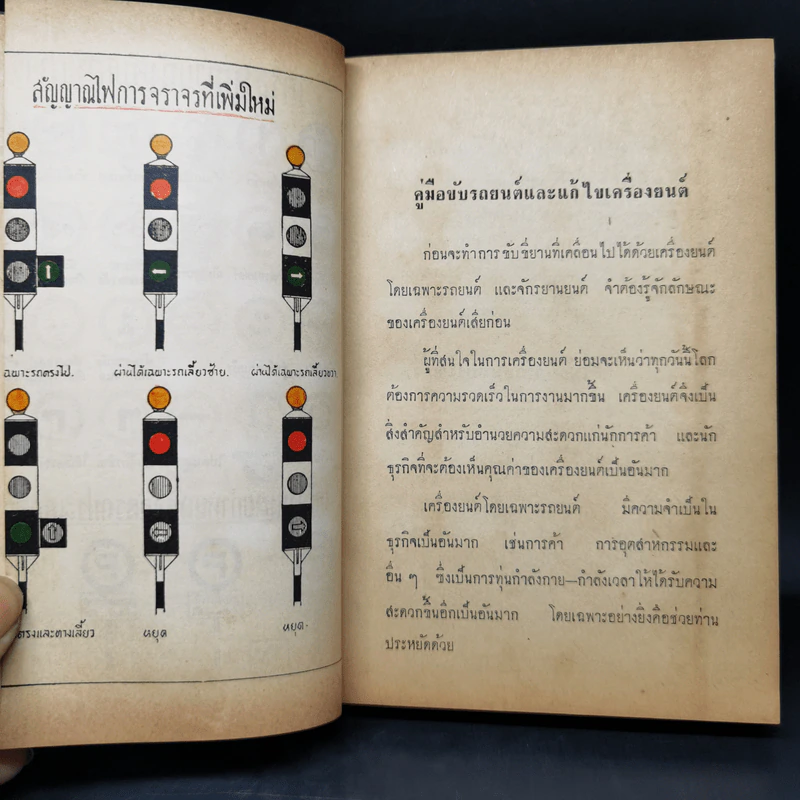 สัญญาณไฟการจราจรที่เพิ่มใหม่
เฉพาะรถตรงไป.
ผ่านได้เฉพาะรถเลี้ยวซ้าย.
ผ่านได้เฉพาะรถเลี้ยวขวา
ตรงและทางเลี้ยว
หยุด
หยุด.
คู่มือขับรถยนต์และแก้ไขเครื่องยนต์
ก่อนจะทำการขับขี่ยานที่เคลื่อนไปได้ด้วยเครื่องยนต์
โดยเฉพาะรถยนต์ และจักรยานยนต์ จำต้องรู้จักลักษณะ
ของเครื่องยนต์เสียก่อน
ผู้ที่สนใจในการเครื่องยนต์ ย่อมจะเห็นว่าทุกวันนี้โลก
ต้องการความรวดเร็วในการงานมากขึ้น เครื่องยนต์จึงเป็น
สิ่งสำคัญสำหรับอำนวยความสะดวกแก่นักการค้า และนัก
ธุรกิจที่จะต้องเห็นคุณค่าของเครื่องยนต์เป็นอันมาก
เครื่องยนต์โดยเฉพาะรถยนต์ มีความจำเป็นใน
ธุรกิจเป็นอันมาก เช่นการค้า การอุตสาหกรรมและ
อื่น ๆ ซึ่งเป็นการทุ่นกำลังกาย—กำลังเวลาให้ได้รับความ
สะดวกขึ้นอีกเป็นอันมาก โดยเฉพาะอย่างยิ่งคือช่วยท่าน
ประหยัดด้วย